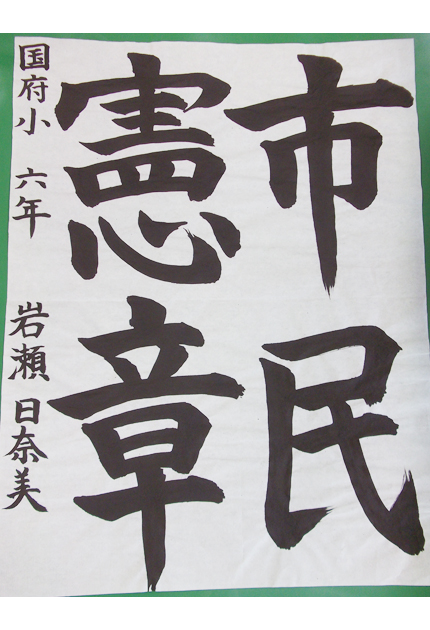 市民
憲章
国府小 六年 岩瀬 日奈美